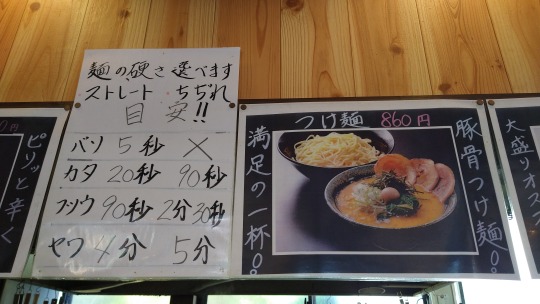 麺の硬さ選べます
ストレート・ちぢれ
目安!!
バリ 5秒 ×
カタ 20秒 90秒
フツウ 90秒 2分30秒
ヤワ 4分 5分
つけ麺 860円
豚骨つけ麺!!
満足の一杯!!
ピリッと辛く
大盛りオスス